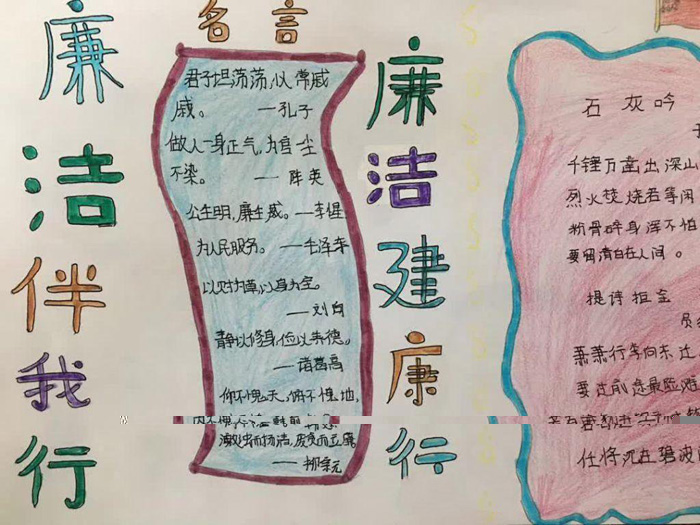 廉洁伴我行
名言
君子坦荡荡,
戚。 —孔子
做人一身正气,为官一尘
不染。 —— 陈英
公生明,廉生威。—李惺
为人民服务。—毛泽东
—刘向
静以修身,俭以养德。
—诸葛亮
仰不愧天,俯不愧地,
激浊而扬清,废贪而立廉
——柳宗元
廉洁建康行
石灰吟
千锤万凿出深山
烈火焚烧若等闲
粉骨碎身浑不怕
要留清白在人间。
提诗拒金
萧萧行李向东还
要过前途最险难
任将沉在碧波